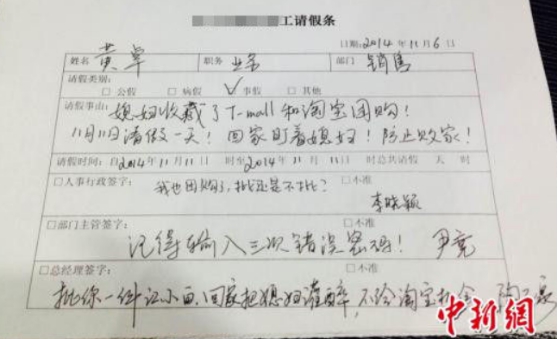 工请假条
日期:2014年11月6日
姓名 黄卓 职务 业务 部门 销售
请假类别:
□公假 □病假 ✓事假 □其他
请假事由: 媳妇收藏了T-mall和淘宝团购!
11月11日请假一天!回家盯着媳妇!防止败家!
请假时间:自2014年11月11日 时至2014年11月11日 时总共请假 天 时
□人事行政签字: □不准
我也团购了,批还是不批?
李晓颖
□部门主管签字: □不准
记得输入三次错误密码! 尹亮
□总经理签字: □不准
批你一件江小白,回家把媳妇灌醉,不给淘宝机会
中新網